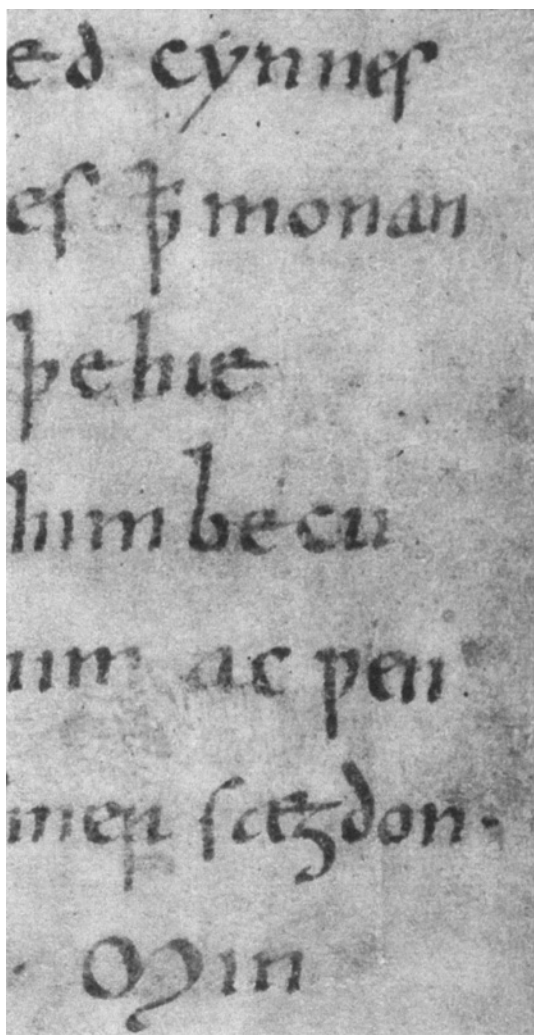 ed cẏnnes
es ꝥ monan
þe hie
him becu
um ac ƿen
mer sægdon·
· Min